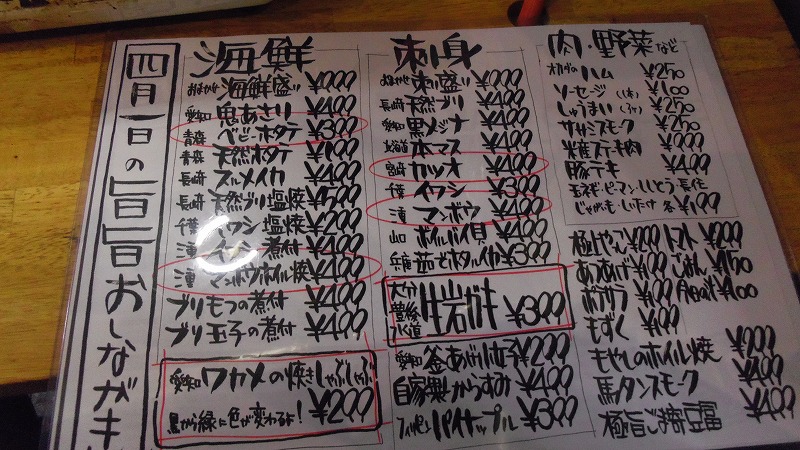 四月一日の旨旨おしながき
海鮮
おまかせ 海鮮盛り
愛知 鬼あさり ¥400
青森 ベビーホタテ ¥300
青森 天然ホタテ
長崎 スルメイカ ¥400
長崎 天然ブリ塩焼 ¥500
千葉 イワシ塩焼 ¥200
三重 イワシ煮付 ¥400
三重 マンボウホイル焼 ¥400
ブリもつの煮付 ¥400
ブリ玉子の煮付 ¥400
愛知 ワカメの焼きしゃぶしゃぶ
黒から緑に色が変わるよ! ¥200
刺身
おまかせ 刺し盛り
長崎 天然ブリ ¥400
愛知 黒メジナ ¥400
北海道 本マス ¥400
宮崎 カツオ ¥400
千葉 イワシ ¥300
三重 マンボウ ¥400
山口 ボイルバイ貝 ¥400
兵庫 茹でホタルイカ ¥300
大分 豊後水道 生岩ガキ ¥300
愛知 釜あげ小女子 ¥200
自家製からすみ ¥400
フィリピン パイナップル ¥300
肉・野菜など
オカダのハム ¥250
ソーセージ(1本) ¥100
しゅうまい(3ケ) ¥250
ササミスモーク ¥250
米産ステーキ肉
豚テキ ¥400
玉ネギ・ピーマン・ししとう・長芋
じゃがいも・しいたけ 各¥100
トマト ¥200
あつあげ ¥200 ごはん ¥150
ポテサラ
もずく
もやしのホイル焼 ¥200
馬タンスモーク ¥400
極旨ごま寄豆腐 ¥400